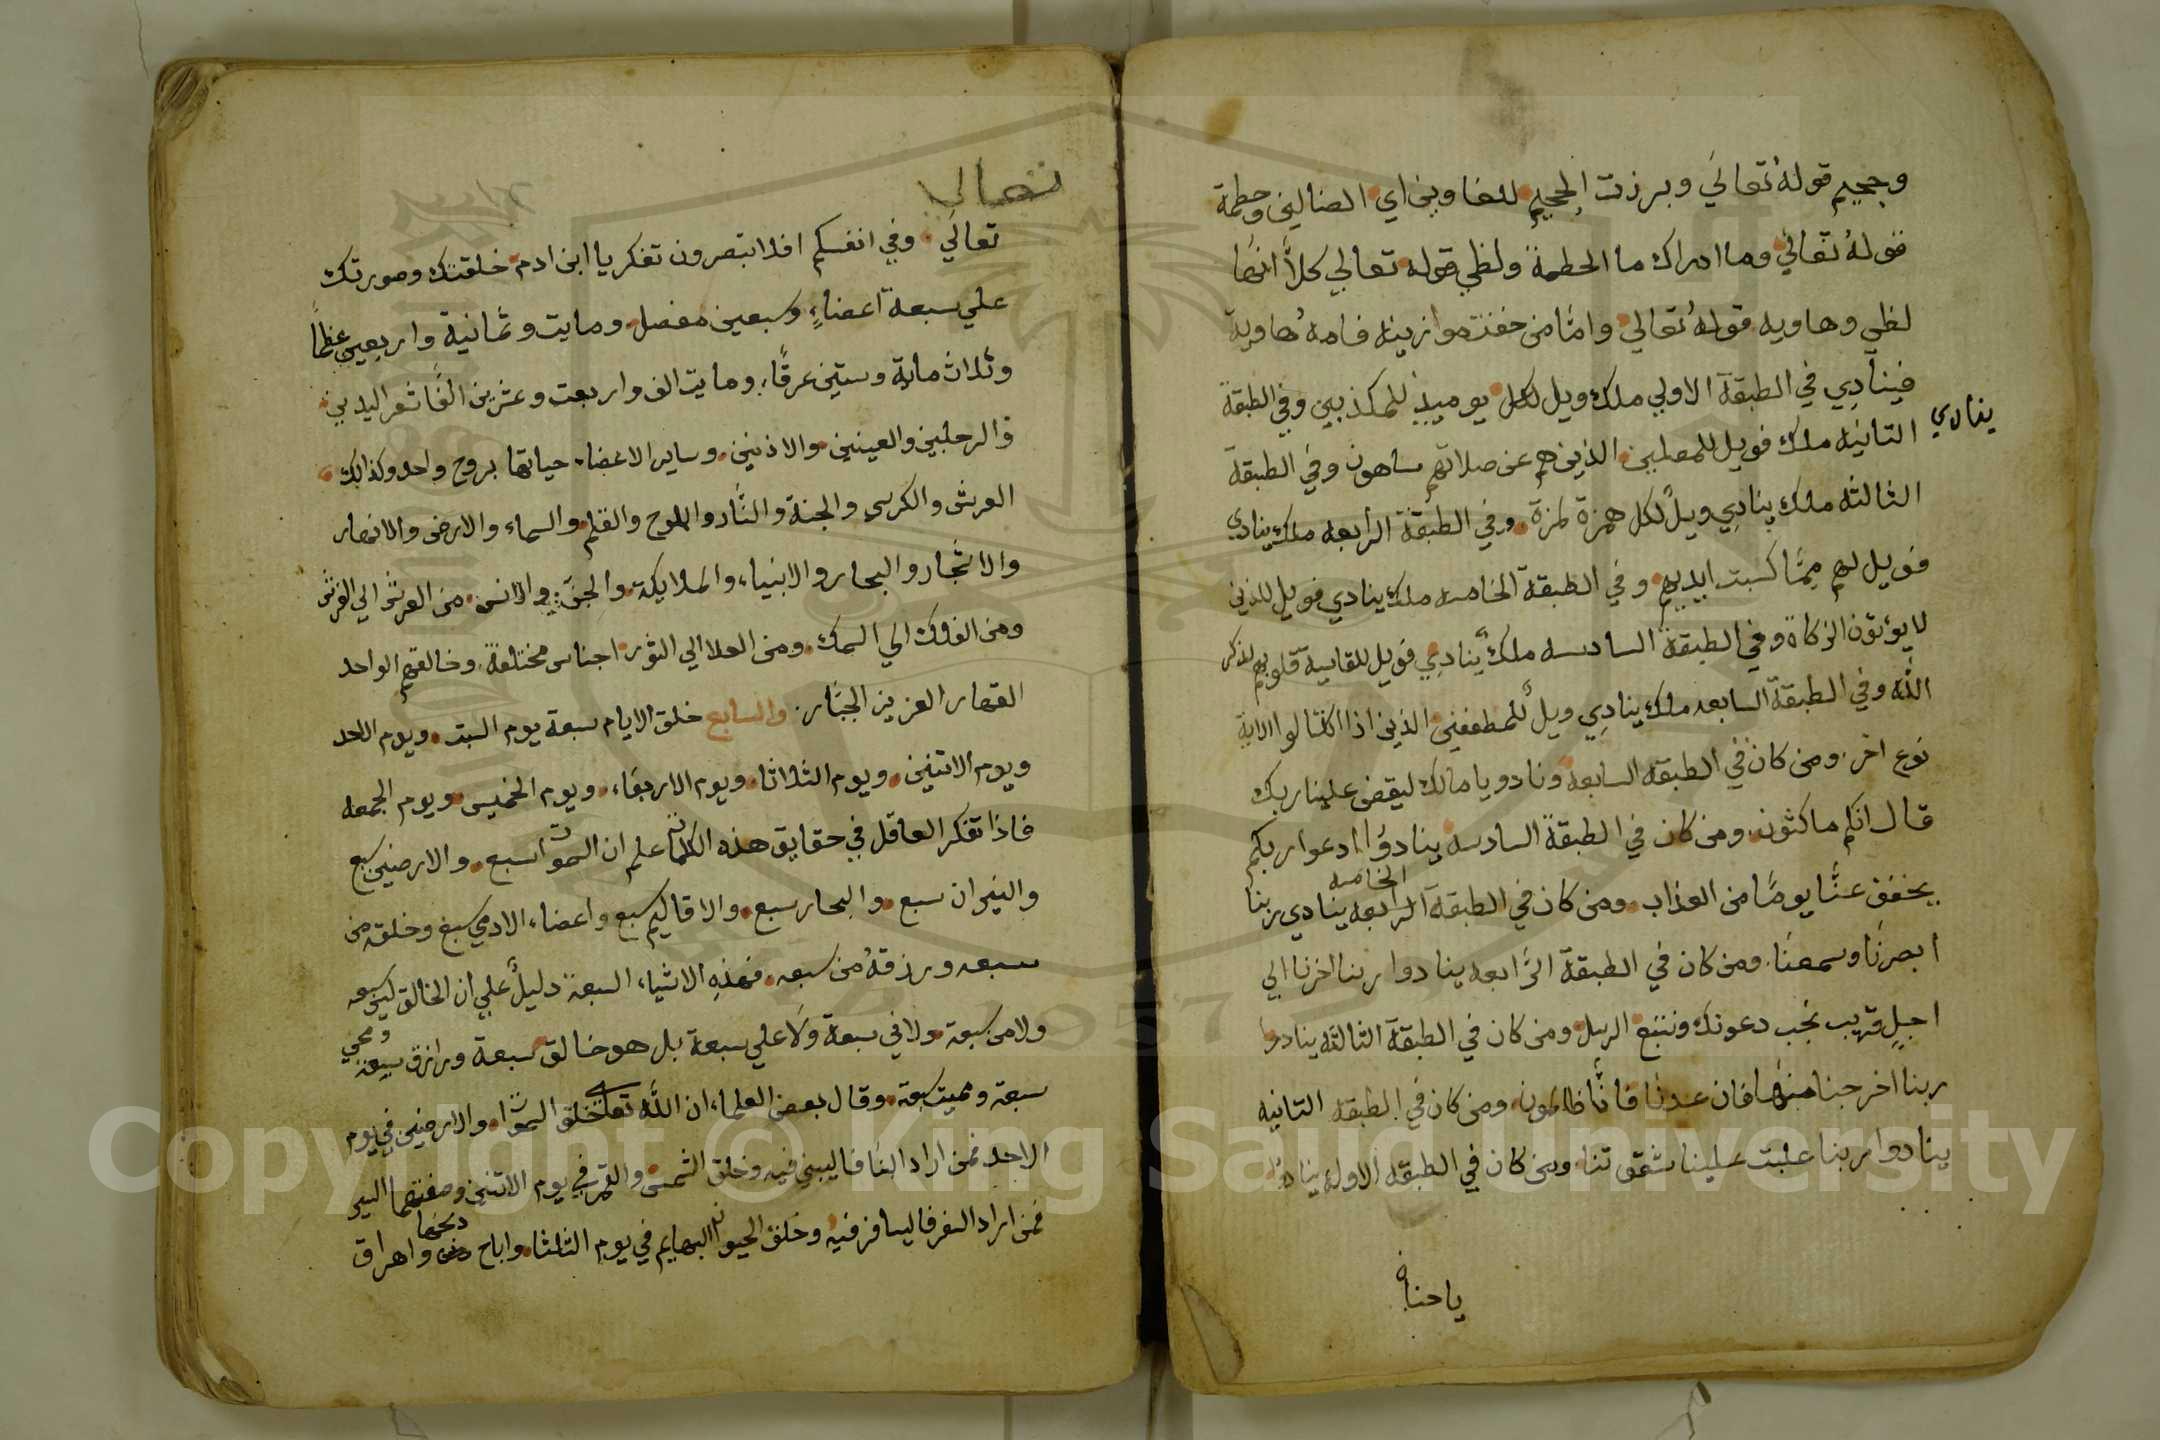 وجحيم قوله تعالي وبرزت الجحيم للغاوين اي الضالين وحطمة
قوله تعالي وما ادراك ما الحطمة ولظي قوله تعالي كلا انها
لظي وهاويه قوله تعالي وامّا من خفت موازينه فامه هاوية
فينادي في الطبقة الاولي ملك ويل لكل يوميذ للمكذبين وفي الطبقة
ينادي
الثانيه ملك فويل للمصلين الذين هم عن صلاتهم ساهون وفي الطبقة
الثالثه ملك ينادي ويل لكل همزة لمزة وفي الطبقة الرابعه ملك ينادي
فويل لهم ممّا كسبت ايديهم وفي الطبقة الخامسه ملك ينادي فويل للذين
لا يؤتون الزكاة وفي الطبقة السادسه ملك ينادي فويل للقاسية قلوبهم لذكر
الله وفي الطبقة السابعه ملك ينادي ويل للمطففين الذين اذا اكتالوا الاية
نوع اخر ومن كان في الطبقه السابعه ونادو يا مالك ليقض علينا ربك
قال انكم ماكثون ومن كان في الطبقة السادسه ينادوا ادعوا ربكم
الخامسه
يخفف عنّا يومًا من العذاب ومن كان في الطبقة الرابعه ينادي ربنا
ابصرنا وسمعنا ومن كان في الطبقة الرّابعه ينادوا ربنا اخرنا الي
اجل قريب نجب دعوتك ونتبع الرسل ومن كان في الطبقة الثالثه ينادوا
ربنا اخرجنا منها فان عدنا فانّا ظالمون ومن كان في الطبقه الثانيه
ينادوا ربنا غلبت علينا شقوتنا ومن كان في الطبقه الاوله ينادوا
يا حنان
تعالي
تعالي وفي انفسكم افلا تبصرون تفكر يا ابن ادم خلقتك وصورتك
علي سبعة اعضاء وسبعين مفصل ومايت وثمانية واربعين عظمًا
وثلاث ماية وستين عرقًا ومايت الف واربعت وعشرين الفًا شعر اليدين
والرجلين والعينين والاذنين وساير الاعضاء حياتها بروح واحد وكذالك
العرش والكرسي والجنة والنّار واللوح والقلم والسماء والارض والانهار
والاشجار والبحار والانبياء والملايكة والجنّ والانس من العرش الي الفرش
ومن الفلك الي السمك ومن العلا الي الثور اجناس مختلفة وخالقهم الواحد
القهار العزيز الجبّار والسابع خلق الايام سبعة يوم السبت ويوم الاحد
ويوم الاثنين ويوم الثلاثا ويوم الاربعاء ويوم الخميس ويوم الجمعه
فاذا تفكر العاقل في حقايق هذه الكلمات علم ان السموات سبع والارضين سبع
والنيران سبع والبحار سبع والاقاليم سبع واعضاء الادمي سبع وخلقه من
سبعه ورزقه من سبعه فهذه الاشياء السبعة دليلٌ علي ان الخالق ليس سبعه
ولا من سبعة ولا في سبعة ولا علي سبعة بل هو خالق سبعة ورازق سبعة
ومحيي
سبعة ومميت سبعة وقال بعض العلماء ان الله تعالي خلق السموات والارضين في يوم
الاحد فمن اراد البنا فاليبني فيه وخلق الشمس والقمر في يوم الاثنين وصفتهما السير
فمن اراد السفر فاليسافر فيه وخلق الحيوان البهايم في يوم الثلثا واباح واهراق
دبحها